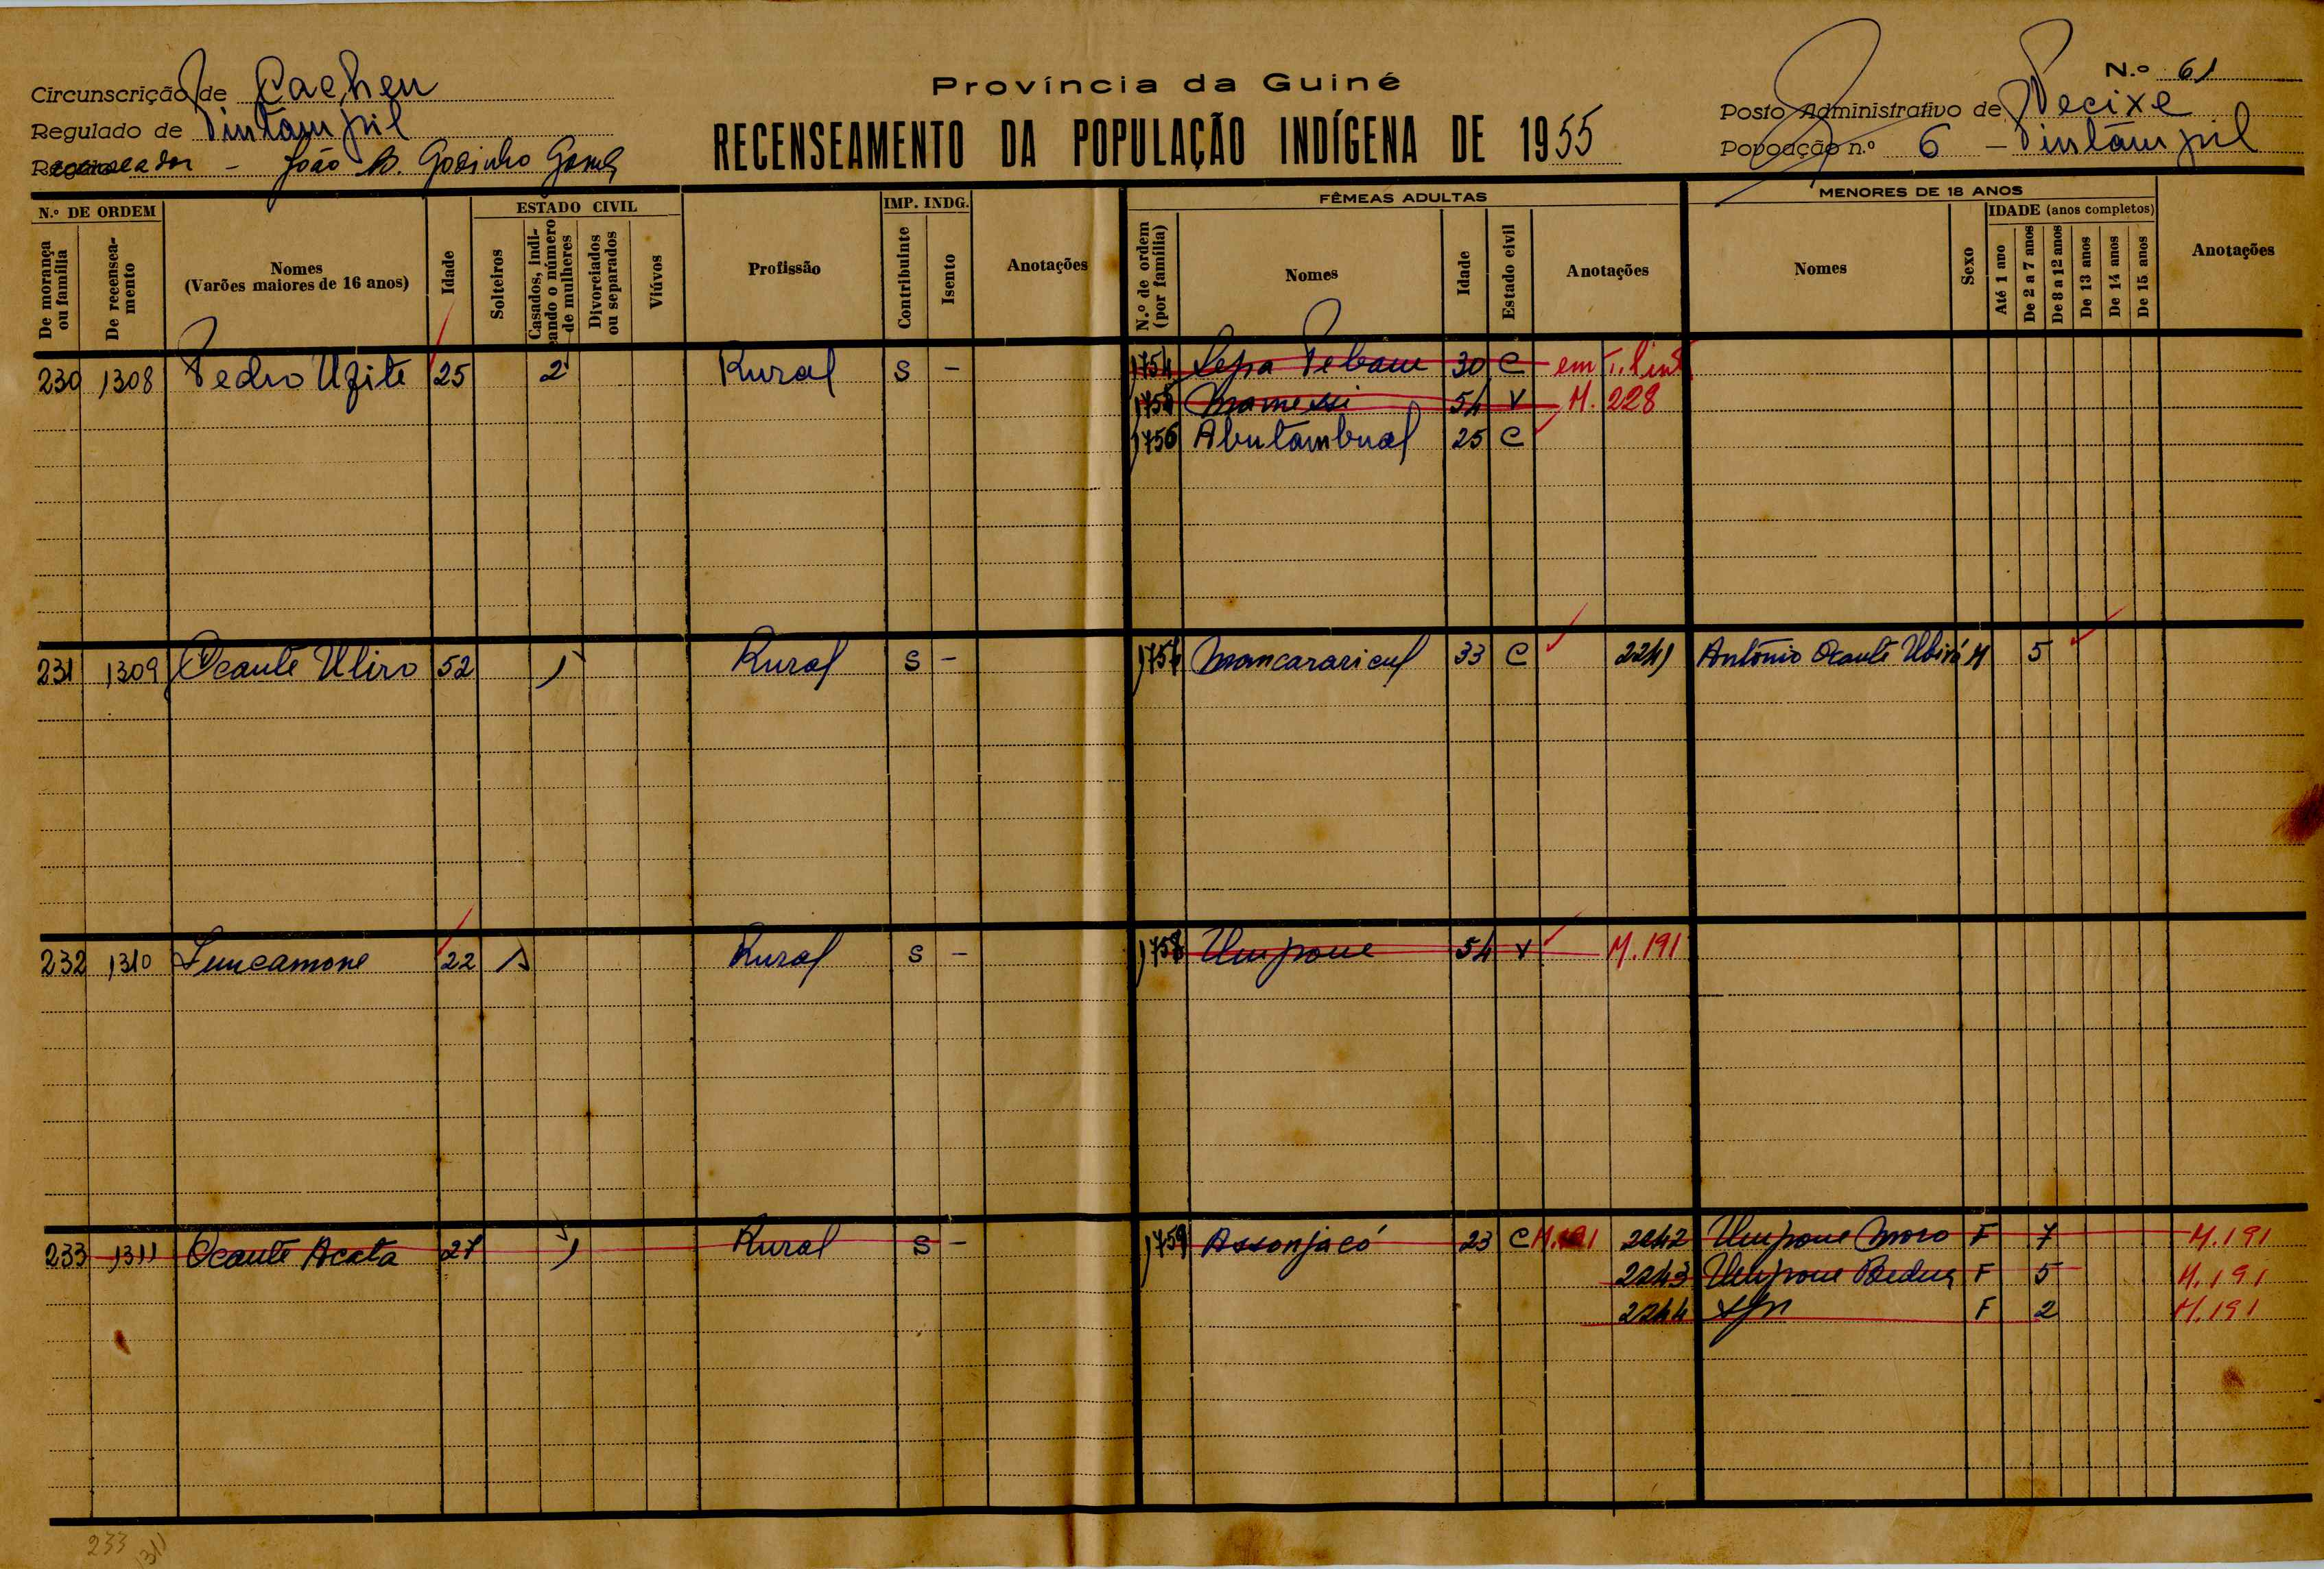 Província da Guiné
RECENSEAMENTO DA POPULAÇÃO INDÍGENA DE 1955
N.º 61
Circunscrição de Cacheu
Regulado de Pintampil
Recenseador - João B. Godinho Gomes
Posto Administrativo de Pecixe
Povoação n.º 6 - Pintampil
N.º DE ORDEM
De morança ou família
De recenseamento
Nomes (Varões maiores de 16 anos)
Idade
ESTADO CIVIL
Solteiros
Casados, indicando o número de mulheres
Divorciados ou separados
Viúvos
Profissão
IMP. INDG.
Contribuinte
Isento
Anotações
FÊMEAS ADULTAS
N.º de ordem (por família)
Nomes
Idade
Estado civil
Anotações
MENORES DE 18 ANOS
Nomes
Sexo
IDADE (anos completos)
Até 1 ano
De 2 a 7 anos
De 8 a 12 anos
De 13 anos
De 14 anos
De 15 anos
Anotações
230 1308 Pedro 25 2 Rural S - 1754 30 C em
1755 54 V M. 228
1756 Abutambual 25 C
231 1309 Ocante Uliro 52 1 Rural S - 1757 Mancararicul 33 C 2241 António Ocante M 5
232 1310 Luncamone 22 1 Rural S - 1758 Umpone 54 V M. 191
233 1311 Ocante Acata 27 1 Rural S - 1759 Assonjacó 23 C M. 191 2242 Umpone Moro F 7 M. 191
2243 Umpone F 5 M. 191
2244 F 2 M. 191
233 1311